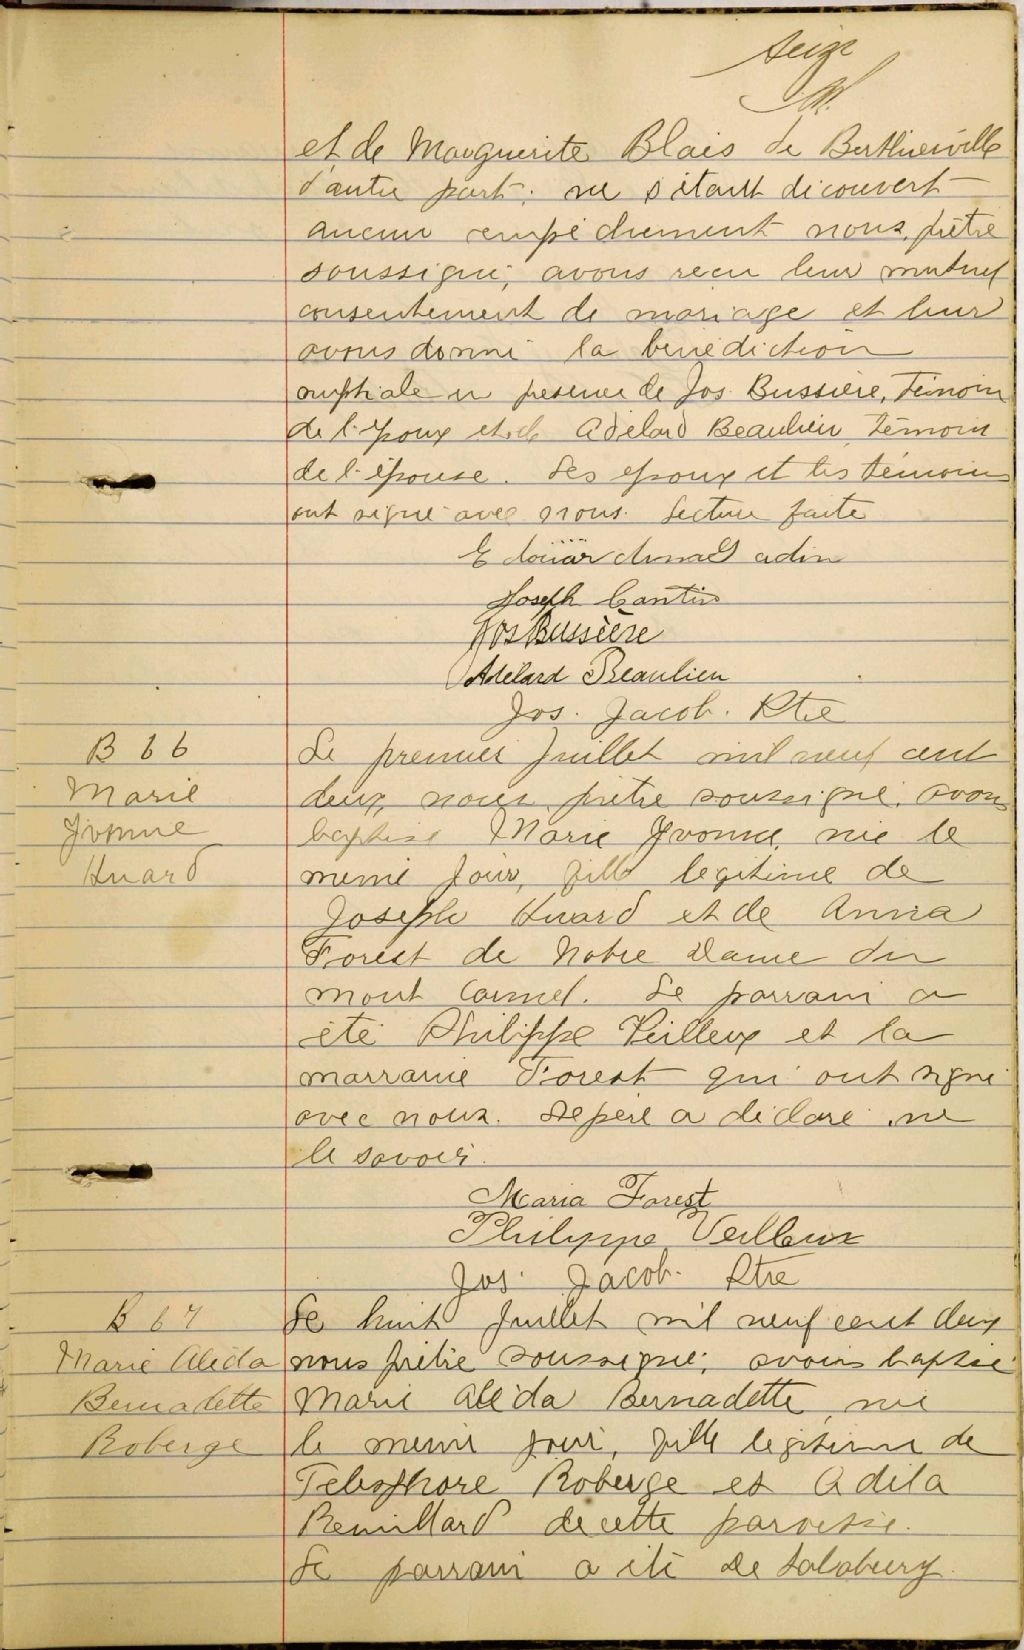 seize
et de Marguerite Blais de Berthierville
d'autre part; ne s'étant découvert
aucun empêchement nous, prêtre
soussigné, avons reçu leur mutuel
consentement de mariage et leur
avons donné la bénédiction
nuptiale en présence de Jos. Bussière, Témoin
de l'époux et de Adélard Beaulieu, témoin
de l'épouse. Les époux et les témoins
ont signé avec nous. Lecture faite
Joseph Cantin
Jos Bussière
Adélard Beaulieu
Jos. Jacob. Ptre
B 66
Marie
Yvonne
Huard
Le premier Juillet mil neuf cent
deux, nous, prêtre soussigné, avons
baptisé Marie Yvonne, née le
même jour, fille légitime de
Joseph Huard et de Anna
Forest de Notre Dame du
mont Carmel. Le parrain a
été Philippe Veilleux et la
marraine Forest qui ont signé
avec nous. Le père a déclaré ne
le savoir.
Maria Forest
Philippe Veilleux
Jos. Jacob. Ptre
B 67
Marie Alida
Bernadette
Roberge
Le huit Juillet mil neuf cent deux
nous prêtre soussigné, avons baptisé
Marie Alida Bernadette née
le même jour, fille légitime de
Télesphore Roberge et Adila
Remillard de cette paroisse.
Le parrain a été De Salabery